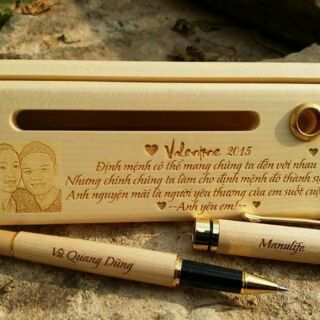 Valentine 2015
Định mệnh có thể mang chúng ta đến với nhau
Nhưng chính chúng ta làm cho định mệnh đó thành sự
Anh nguyện mãi là người yêu thương của em suốt cuộc
--Anh yêu em!--
Manulife
Vũ Quang Dũng